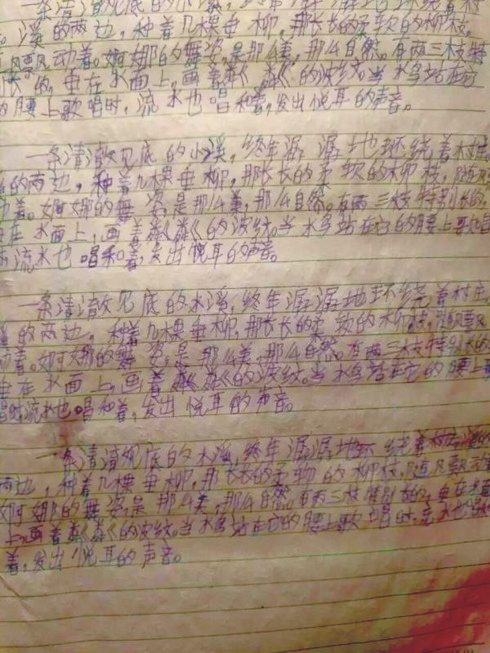 一条清澈见底的小溪,终年潺潺地环绕着村
溪的两边,种着几棵垂柳,那长长的柔软的柳枝,
随风飘动着。婀娜的舞姿,是那么美,那么自然。有两三枝特
长的,垂在水面上,画着粼粼的波纹。当水鸟站在它
的腰上歌唱时,流水也唱和着,发出悦耳的声音。
一条清澈见底的小溪,终年潺潺地环绕着村庄。
的两边,种着几棵垂柳,那长长的柔软的柳枝,随风
动着。婀娜的舞姿,是那么美,那么自然。有两三枝特别长的,
在水面上,画着粼粼的波纹。当水鸟站在它的腰上歌唱
流水也唱和着,发出悦耳的声音。
一条清澈见底的水溪,终年潺潺地环绕着村庄。
的两边,种着几棵垂柳,那长长的柔软的柳枝,随风飘
动着。婀娜的舞姿,是那么美,那么自然。有两三枝特别长的
垂在水面上,画着粼粼的波纹。当水鸟站在它的腰上歌
唱时,流水也唱和着,发出悦耳的声音。
一条清澈见底的水溪,终年潺潺地环绕着村庄。溪的
两边,种着几棵垂柳,那长长的柔软的柳枝,随风飘动着
婀娜的舞姿,是那么美,那么自然。有两三枝特别长的,垂在水面
上,画着粼粼的波纹。当水鸟站在它的腰上歌唱时,流水也唱和
着,发出悦耳的声音。